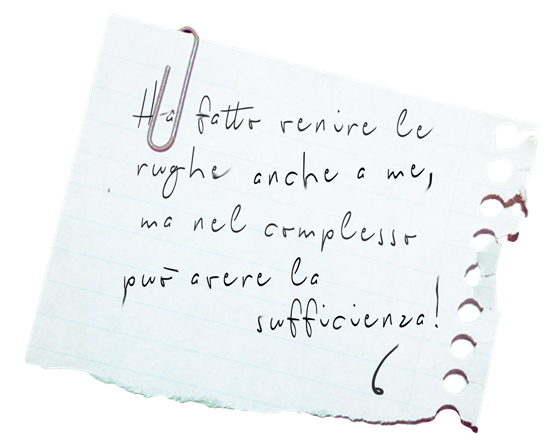 Ha fatto venire le
rughe anche a me,
ma nel complesso
può avere la
sufficienza!
6